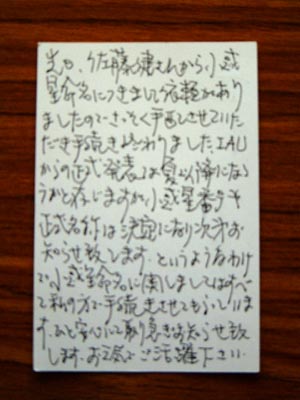 先日、佐藤健さんから小惑
星命名につきまして依頼があり
ましたのでさっそく手配させていた
だき手続き終わりました。IAU
からの正式発表は夏以降になろ
うかと存じますが小惑星番号や
正式名称は決定になり次第お
知らせ致します。というようなわけ
で小惑星命名に関しましてはすべ
て私の方で手続きさせてもらっていま
す。ひと安心にて取り急ぎお知らせ致
します。お元気でご活躍下さい。